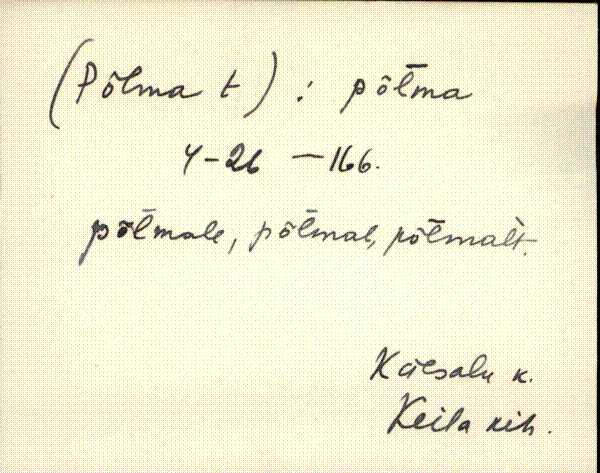 (Põlma t) : põl̄ma
4-26 - 166.
põl̄male, põl̄mal, põl̄malt.
Keila kih.